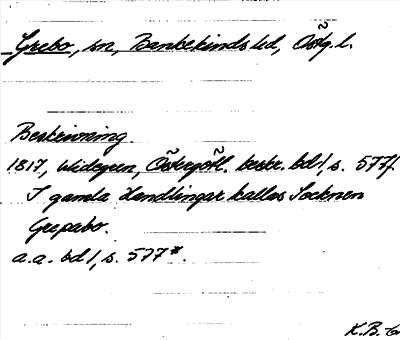 Grebo, sn, Bankekinds hd, Östg.l.
Beskrivning.
1817, Widegren, Östergötl. beskr. bd 1, s. 577f.
I gamla Handlingar kallas Socknen
Grepabo.
a.a. bd 1, s. 577*.
K.B.